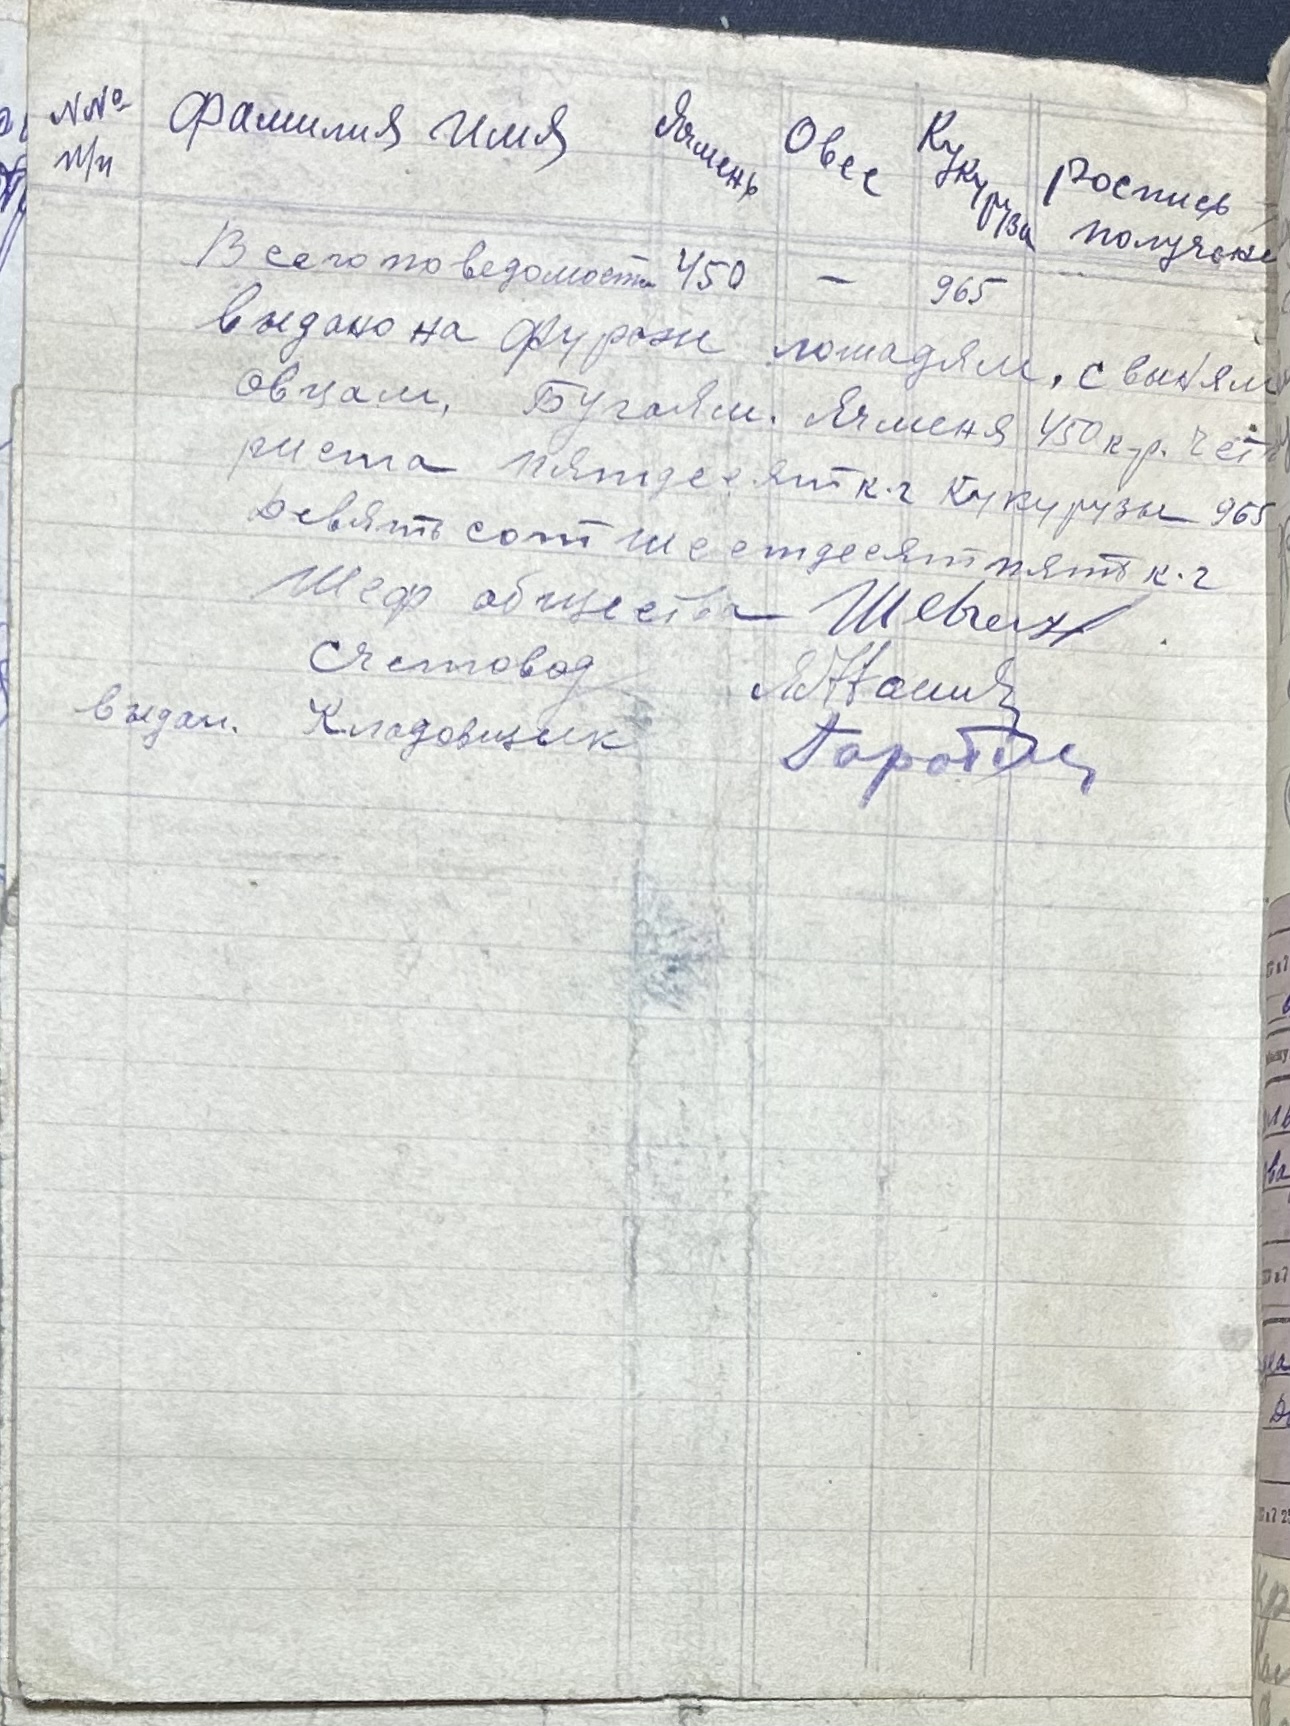 NNº п/п Фамилия Имя Ячмень Овес Кукуруза Роспись получено
Всего по ведомости 450 — 965
выдано на фураж лошадям, свиням
овцам, Бугаям. Ячменя 450 к.г. чет
риста пятдесят к.г Кукурузы 965
девять сот шестдесят пять к.г
Шеф общества
Счетовод
выдал. Кладовщик